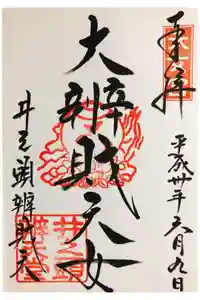 奉拝
平成卅年六月九日
大辨財天女
井之頭辨財天